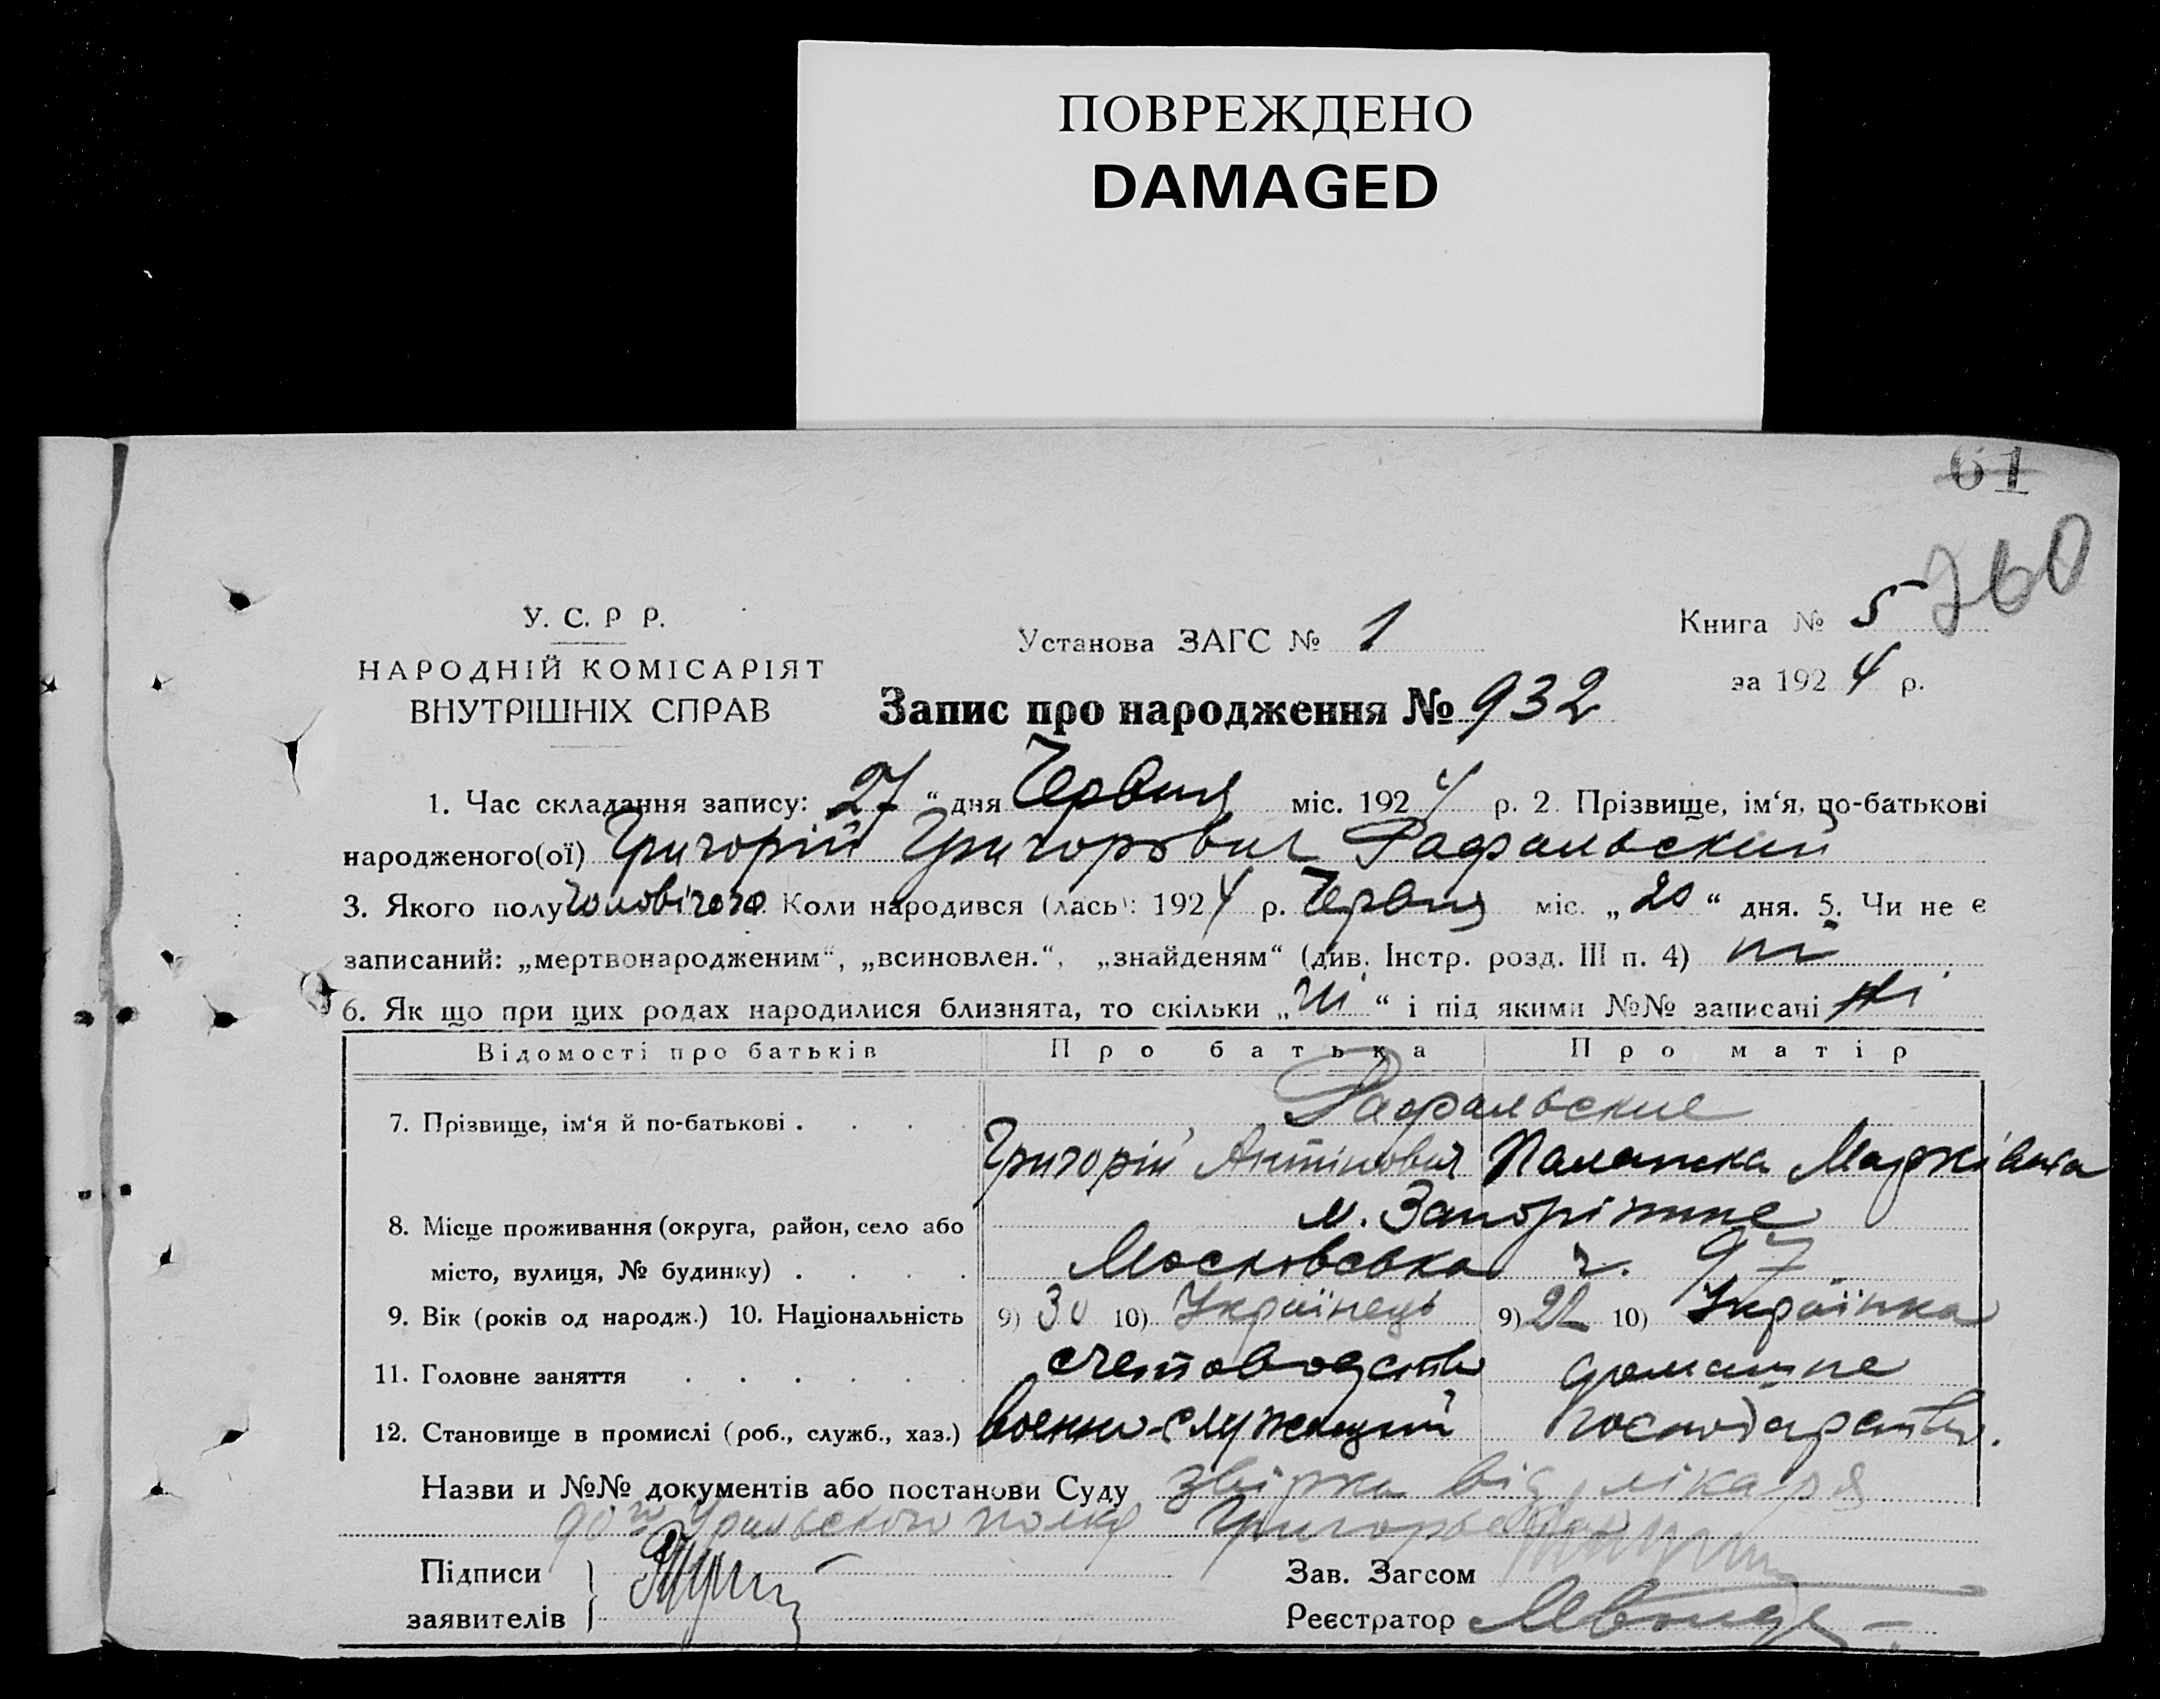 ПОВРЕЖДЕНО
DAMAGED
61
260
У. С. Р Р.
НАРОДНІЙ КОМІСАРІЯТ
ВНУТРІШНІХ СПРАВ
Установа ЗАГС № 1
Книга № 5
за 1924 р.
Запис про народження № 932
1. Час складання запису: 27 “ дня Червня міс. 1924 р. 2 Прізвище, ім‘я, по-батькові
народженого(ої) Григорій Григорович Рафальский
3. Якого полу чоловічого Коли народився (лась): 1924 р. Червня міс. „20“ дня. 5. Чи не є
записаний: „мертвонародженим“, „всиновлен.“, „знайденям“ (див. Інстр. розд. III п. 4) ні
6. Як що при цих родах народилися близнята, то скільки „ні“ і під якими №№ записані ні
Відомості про батьків Про батька Про матір
7. Прізвище, ім‘я й по-батькові . . . . Рафальские
Григорій Антінович Палажка Марківна
8. Місце проживання (округа, район, село або м. Запоріжже
місто, вулиця, № будинку) . . . . Московська ч. 97
9. Вік (років од народж.) 10. Національність 9) 30 10) Українець 9) 22 10) Українка
11. Головне заняття . . . . . . счетоводство домашне
12. Становище в промислі (роб., служб., хаз.) военно-служащий господарство.
Назви и №№ документів або постанови Суду звірка від лікаря
90го Уральского полка Григорьева
Підписи
заявителів
Зав. Загсом
Реєстратор